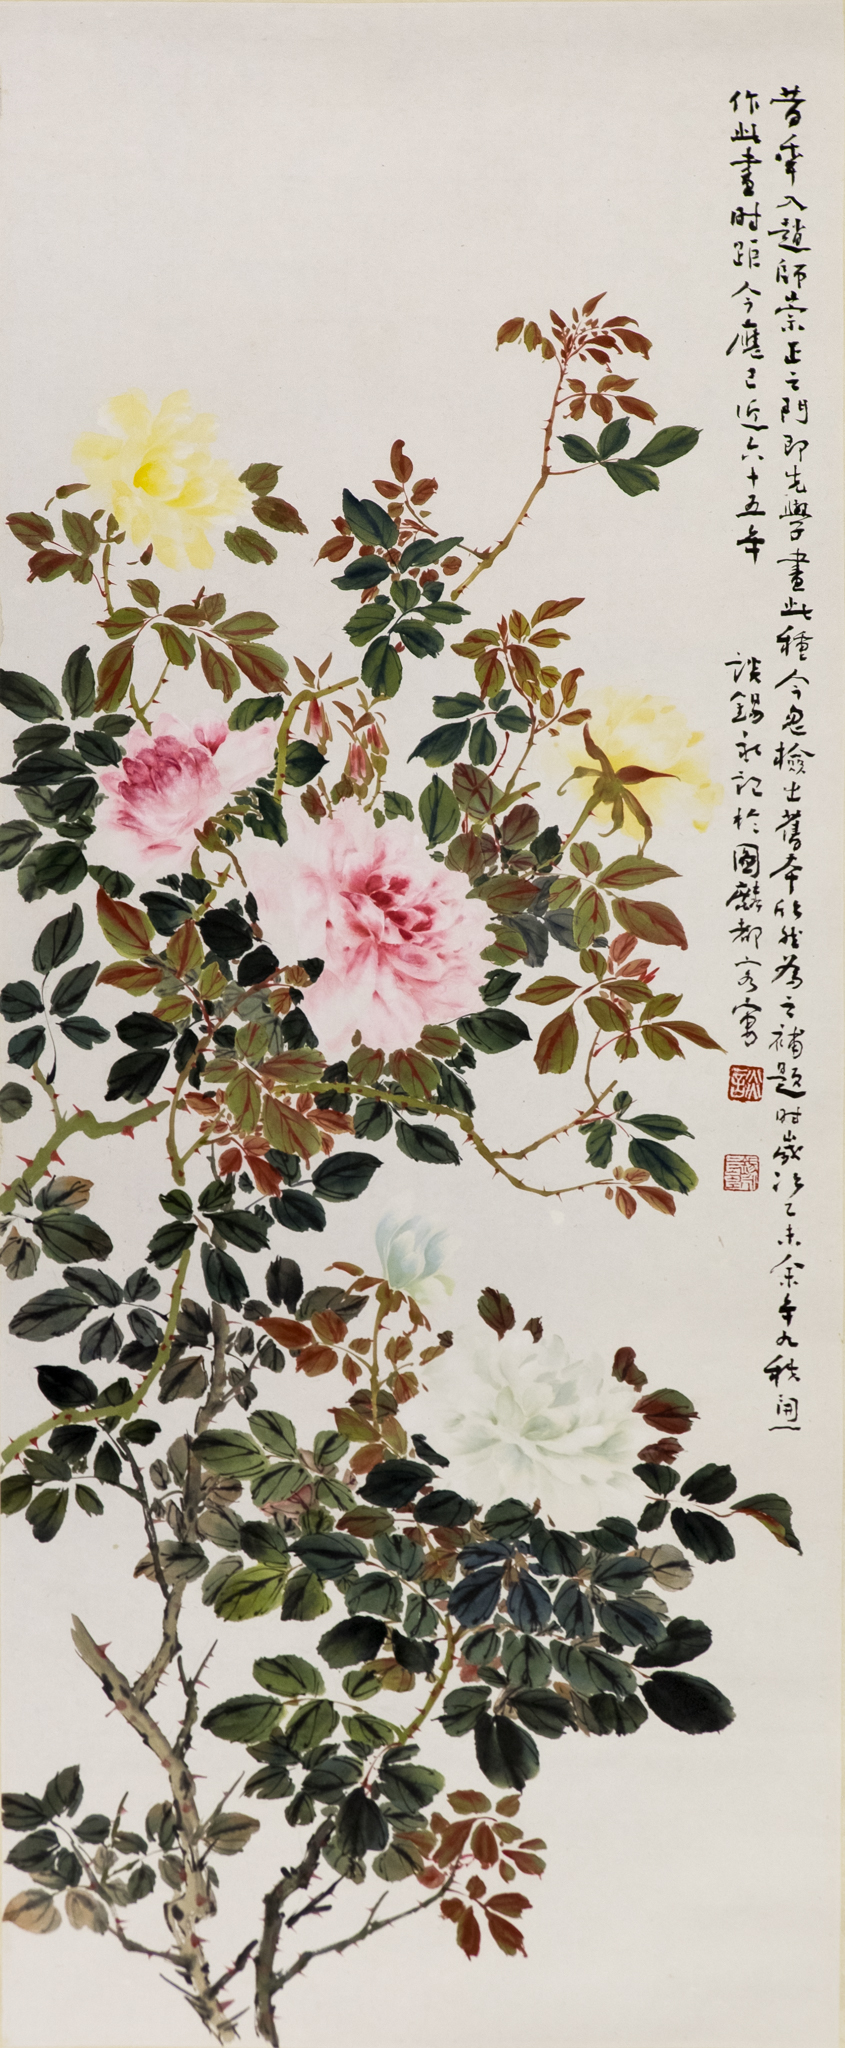 昔年入趙師崇正之門即先學畫此種今忽檢出舊本欣然為之補題时歲次乙未余年九秩開一
作此畫时距今應已近六十五年 談錫永記於圖麟都客寓
談